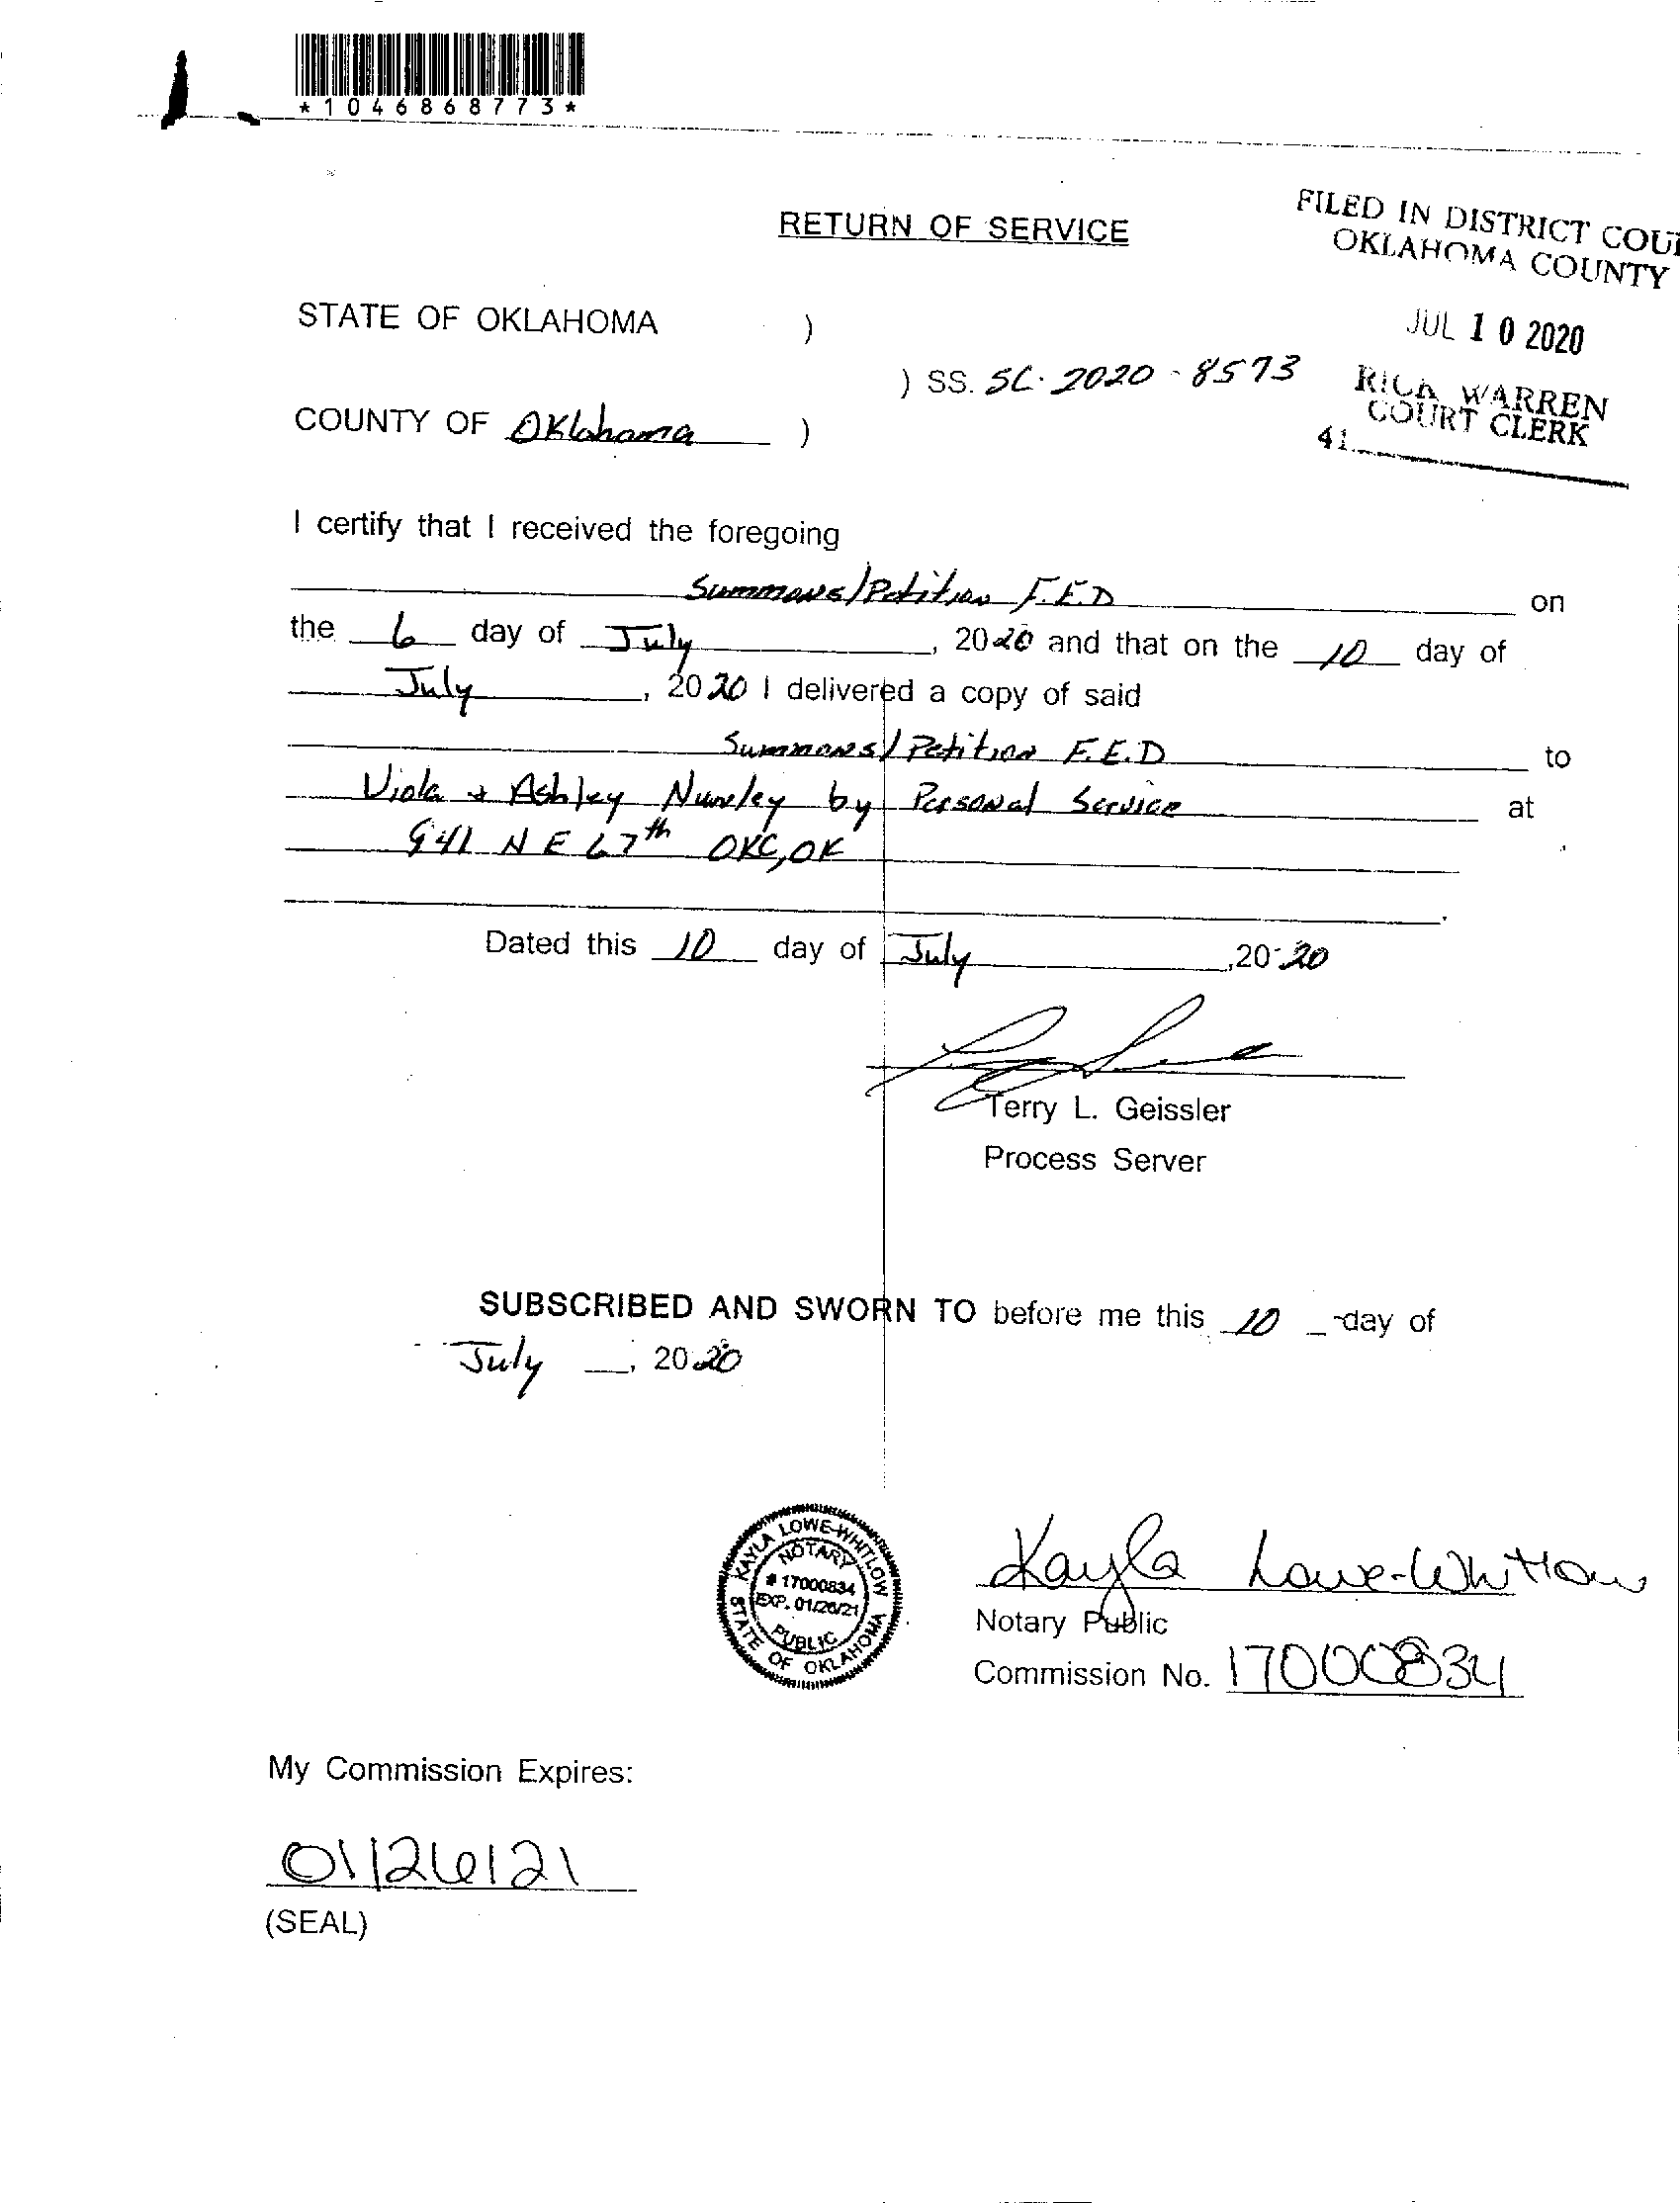 *1046868773*
RETURN OF SERVICE
FILED IN DISTRICT COU
OKLAHOMA COUNTY
JUL 10 2020
RICK WARREN
COURT CLERK
41
STATE OF OKLAHOMA )
) SS. SC-2020-8573
COUNTY OF Oklahoma )
I certify that I received the foregoing
Summons/Petition F.E.D on
the 6 day of July, 2020 and that on the 10 day of
July, 2020 I delivered a copy of said
Summons/Petition F.E.D to
Viola + Ashley Nunley by Personal Service at
941 NE 67th OKC, OK
Dated this 10 day of July, 2020
Terry L. Geissler
Process Server
SUBSCRIBED AND SWORN TO before me this 10 day of
July, 2020
KAYLA LOWE-WHITLOW
NOTARY
# 17000834
EXP. 01/26/21
PUBLIC
STATE OF OKLAHOMA
Kayla Lowe-Whitlow
Notary Public
Commission No. 17000834
My Commission Expires:
01/26/21
(SEAL)